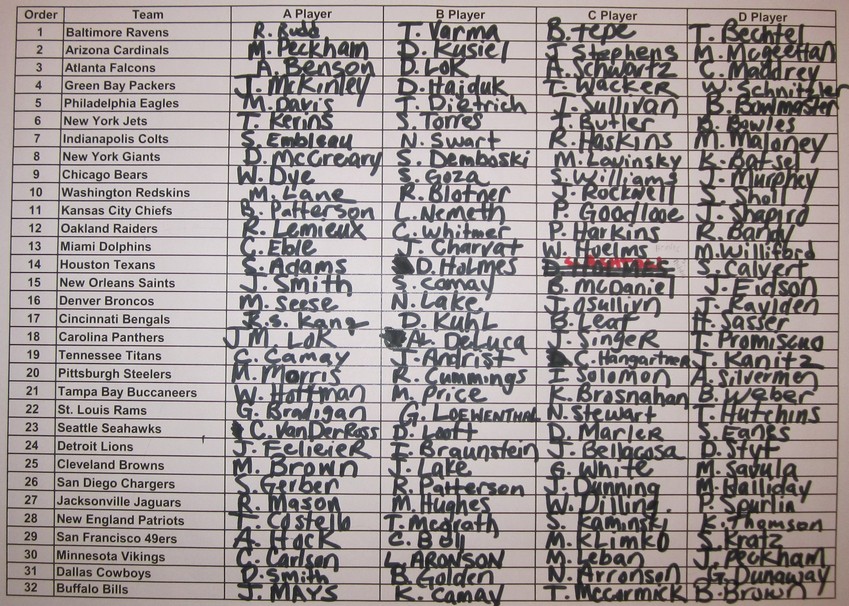 Order Team A Player B Player C Player D Player
1 Baltimore Ravens R. Budd T. Varma B. Tepe T. Bechtel
2 Arizona Cardinals M. Peckham D. Kusiel J. Stephens M. Mcgeehan
3 Atlanta Falcons A. Benson D. Lok A. Schwartz C. Maddrey
4 Green Bay Packers J. McKinley D. Hajduk T. Wacker W. Schnitzler
5 Philadelphia Eagles M. Davis T. Dietrich J. Sullivan B. Bowmaster
6 New York Jets T. Kerins S. Torres Butler Bowles
7 Indianapolis Colts S. Embleau N. Swart R. Haskins M. Maloney
8 New York Giants D. McCreary S. Demboski M. Levinsky K. Batsel
9 Chicago Bears W. Dye S. Goza S. Williams J. Murphey
10 Washington Redskins M. Lane R. Blotner J. Rockwell S. Sholl
11 Kansas City Chiefs B. Patterson L. Nemeth P. Goodloe J. Shapiro
12 Oakland Raiders R. Lemieux C. Whitmer P. Harkins R. Bandy
13 Miami Dolphins C. Eble J. Charvat W. Hoelms M. Williford
14 Houston Texans S. Adams D. Holmes S. Calvert
15 New Orleans Saints J. Smith S. Camay B. McDaniel J. Eidson
16 Denver Broncos M. Seese N. Lake J. osullivn T. Rayiden
17 Cincinnati Bengals D. Kuhl B. Leaf H. Sasser
18 Carolina Panthers J M. Lok AL. DeLuca J. Singer T. Promiscuo
19 Tennessee Titans C. Camay J. Andrist C. Hangartner J. Kanitz
20 Pittsburgh Steelers M. Morris R. Cummings I. Solomon A. Silvermen
21 Tampa Bay Buccaneers W. Hoffman M. Price K. Brosnahan B. Weber
22 St. Louis Rams G. Bradigan G. LOEWENTHAL N. Stewart T. Hutchins
23 Seattle Seahawks C. VanDerRoss D. Looft D. Marler S. Eanes
24 Detroit Lions J. Felicier E. Braunstein J. Bellacosa D. Styt
25 Cleveland Browns M. Brown J. Lake G. White M. Savula
26 San Diego Chargers S. Gerber R. Patterson J. Dunning M. Halliday
27 Jacksonville Jaguars R. Mason M. Hughes W. Dilling P. Spurlin
28 New England Patriots T. Costello T. Mcgrath S. Kaminski K. Thomson
29 San Francisco 49ers A. Hock C. Bell M. KLimko S. Kratz
30 Minnesota Vikings C. Carlson L. ARONSON M. Leban J. Peckham
31 Dallas Cowboys D. Smith B. Golden N. Arronson G. Dunaway
32 Buffalo Bills J. MAYS K. Camay T. Mccormick B. Brown